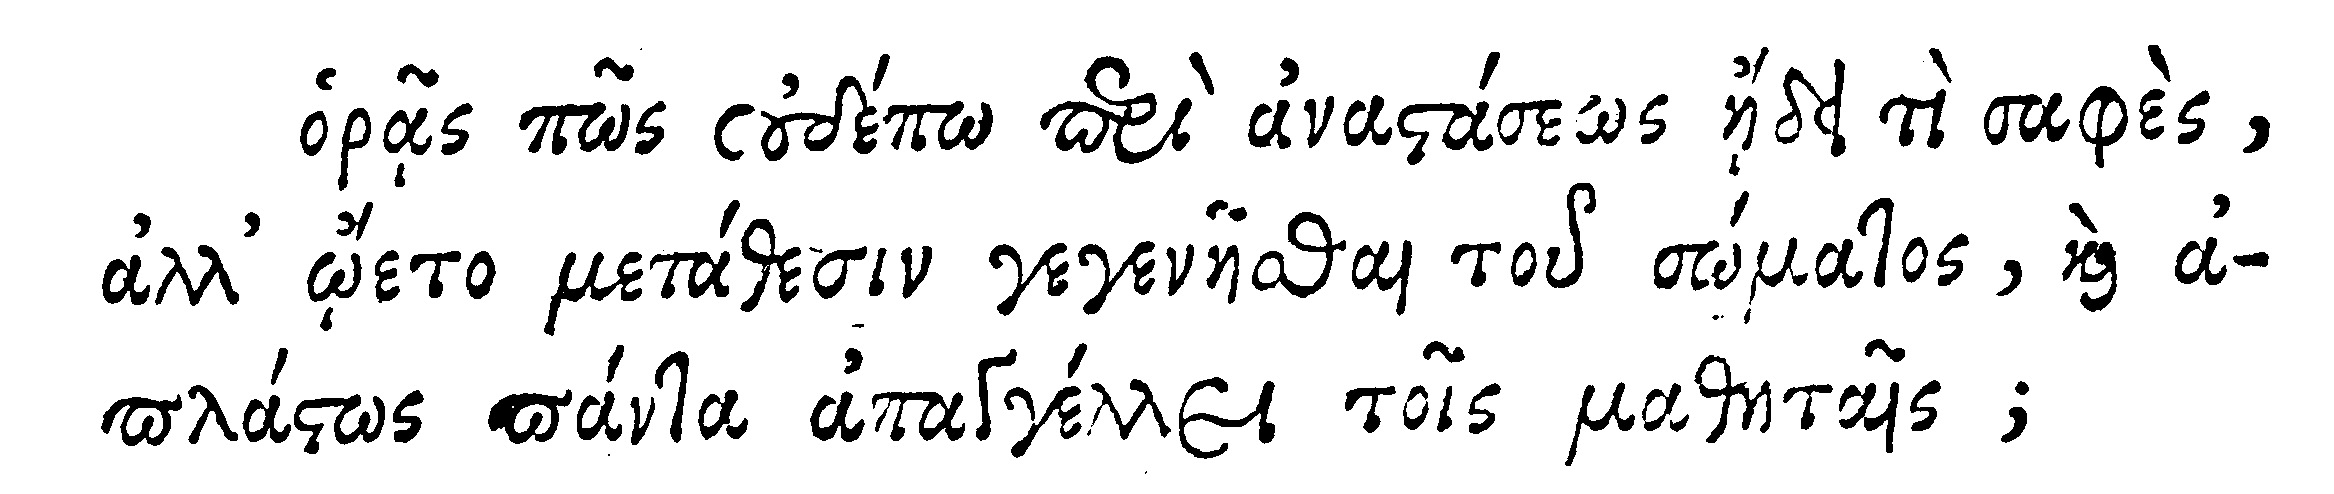 ὁρᾷς πῶς οὐδέπω περὶ ἀναστάσεως ᾔδει τὶ σαφὲς,
ἀλλ' ᾤετο μετάθεσιν γεγενῆσθαι τοῦ σώματος, καὶ ἀ-
πλάστως πάντα ἀπαγγέλλει τοῖς μαθηταῖς;